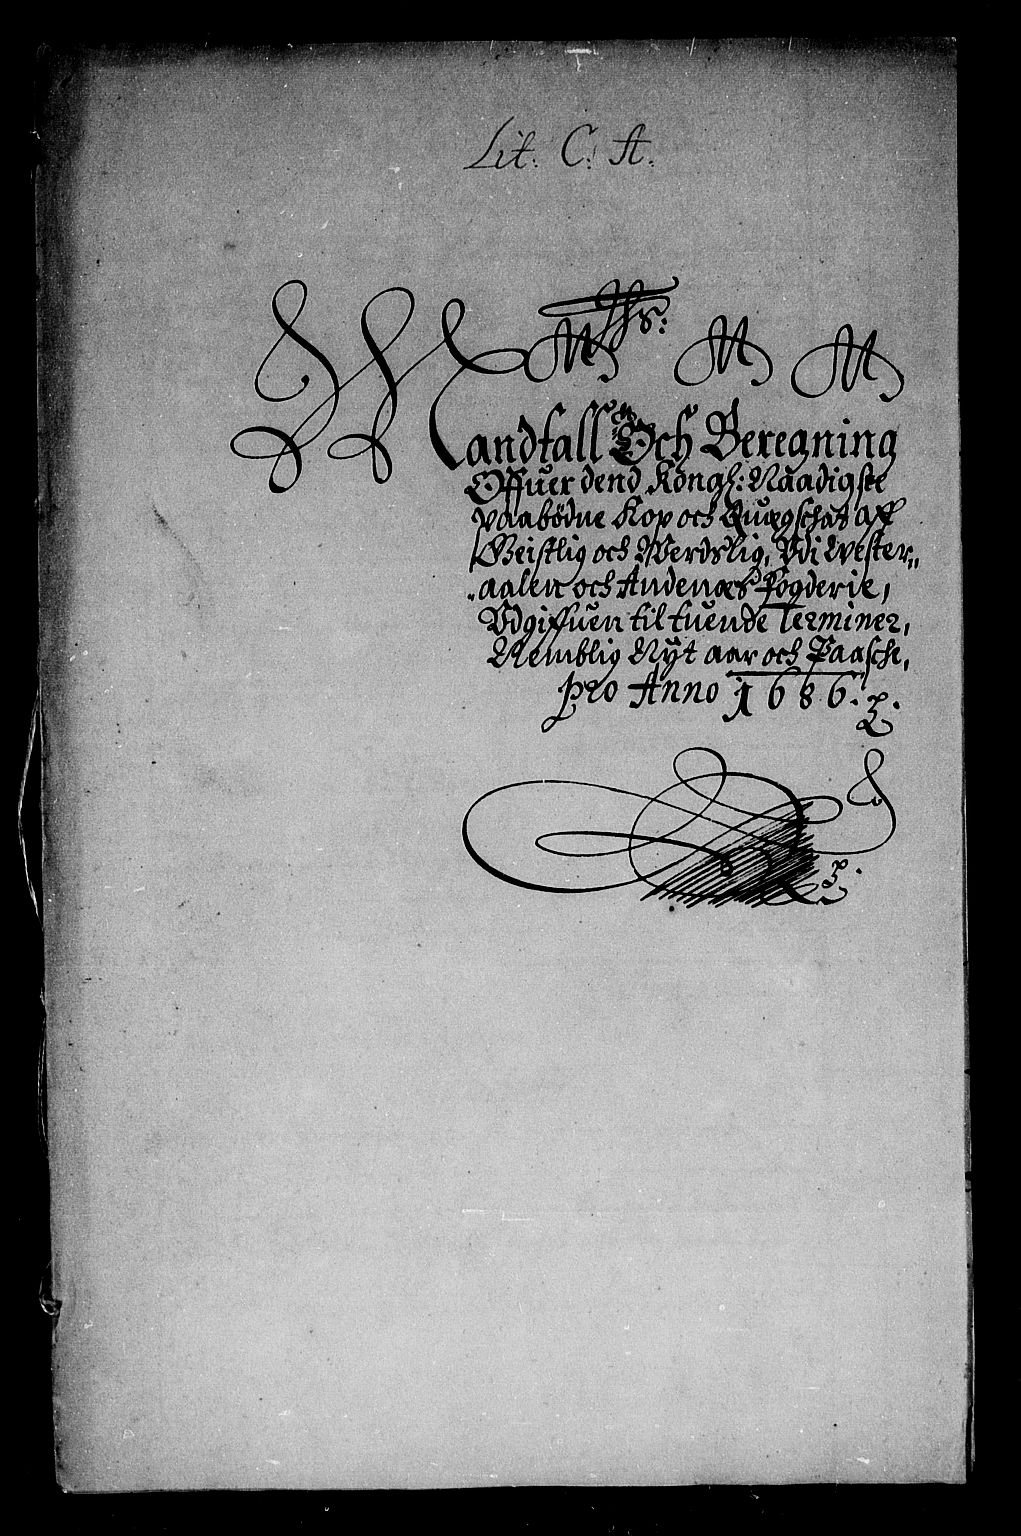 Lit: C: A.
Mandtall Och Beregning
Offuer dend Kongl: Naadigste
paabödne Kop och Quægschat aff
Geistlig och Werdslig, Vdi Wester„
„aalen och Andenæs Fogderie,
Vdgiffuen til tuende Terminer,
Nemblig Nyt aar och Paasche,
pro Anno 1686.